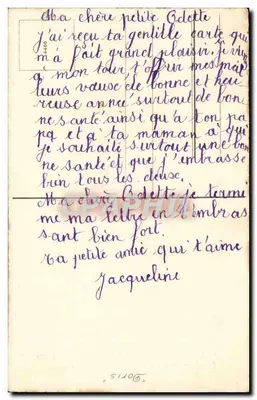 Ma chère petite Odette
j'ai reçu ta gentille carte qui
m'a fait grand plaisir. je viens
a mon tour t'offrir mes meil
leurs vœuse de bonne et heu
reuse année surtout de bon
ne santé ainsi qu'a ton pa
pa et a ta maman a qui
je souhaite surtout une bon
ne santé et que j'embrasse
bien tous les deuse.
Ma chère Odette je termi
ne ma lettre en t'embras
sant bien fort.
Ta petite amie qui t'aime
Jacqueline